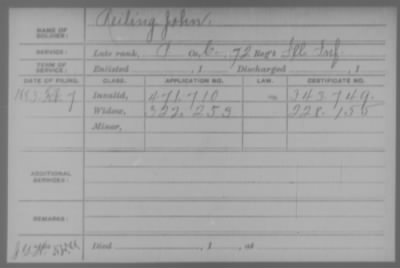 NAME OF SOLDIER: Reiling John.
SERVICE: Late rank, P Co. C., 72 Reg't Ill Inf.
TERM OF SERVICE: Enlisted , 1 Discharged , 1
DATE OF FILING. CLASS. APPLICATION NO. LAW. CERTIFICATE NO.
7 Invalid, 471.710 343.749.
Widow, 522.253 328.155
Minor,
ADDITIONAL SERVICES:
REMARKS:
Died , 1 , at